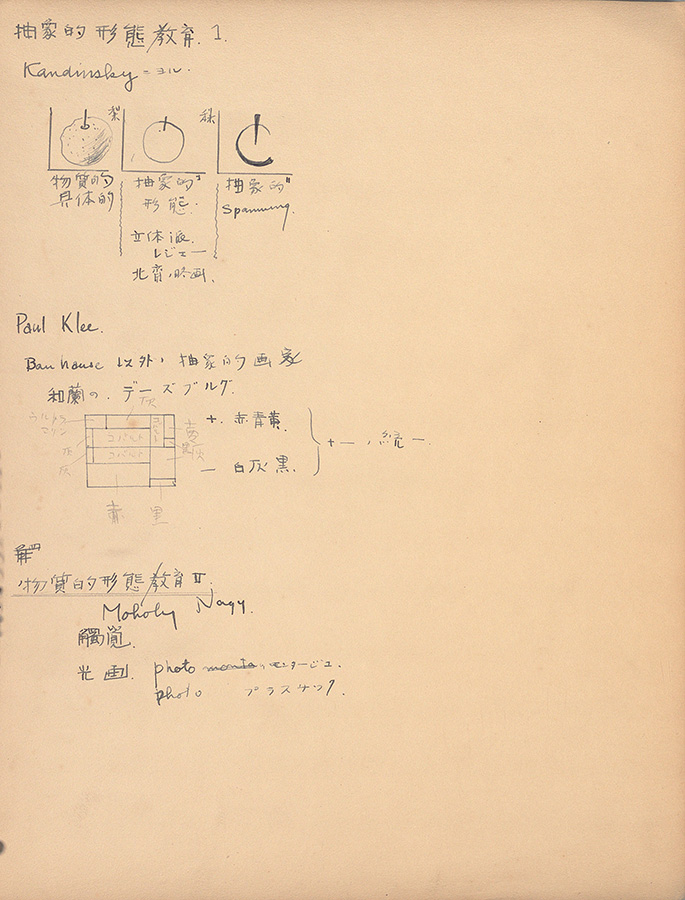 抽象的形態教育. 1.
Kandinsky = ヨル.
物質的 具体的
抽象的 形態.
立体派.
レジェー
北斎ノ略画.
抽象的
Spannung.
Paul Klee.
Bauhause 以外ノ 抽象的画家
和蘭の. デースブルグ.
灰
ウルトラマリン
コバルト
コバルト
灰
灰
黄
灰
赤
黒
+. 赤青黄.
— 白灰黒.
+ — ノ統一.
物質的形態教育 II.
Moholy Nagy.
觸覚.
光画. photo モンタージュ.
photo プラスチック.